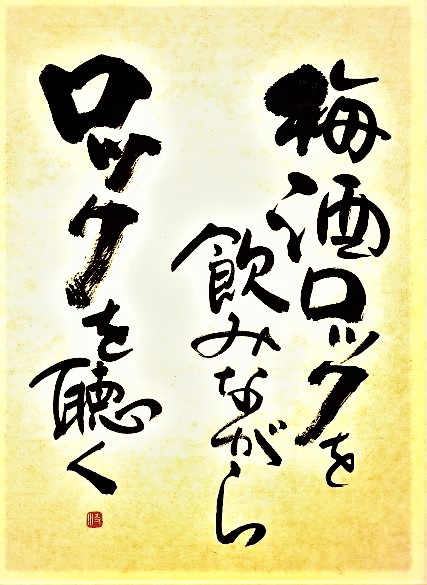 梅酒ロックを
飲みながら
ロックを聴く